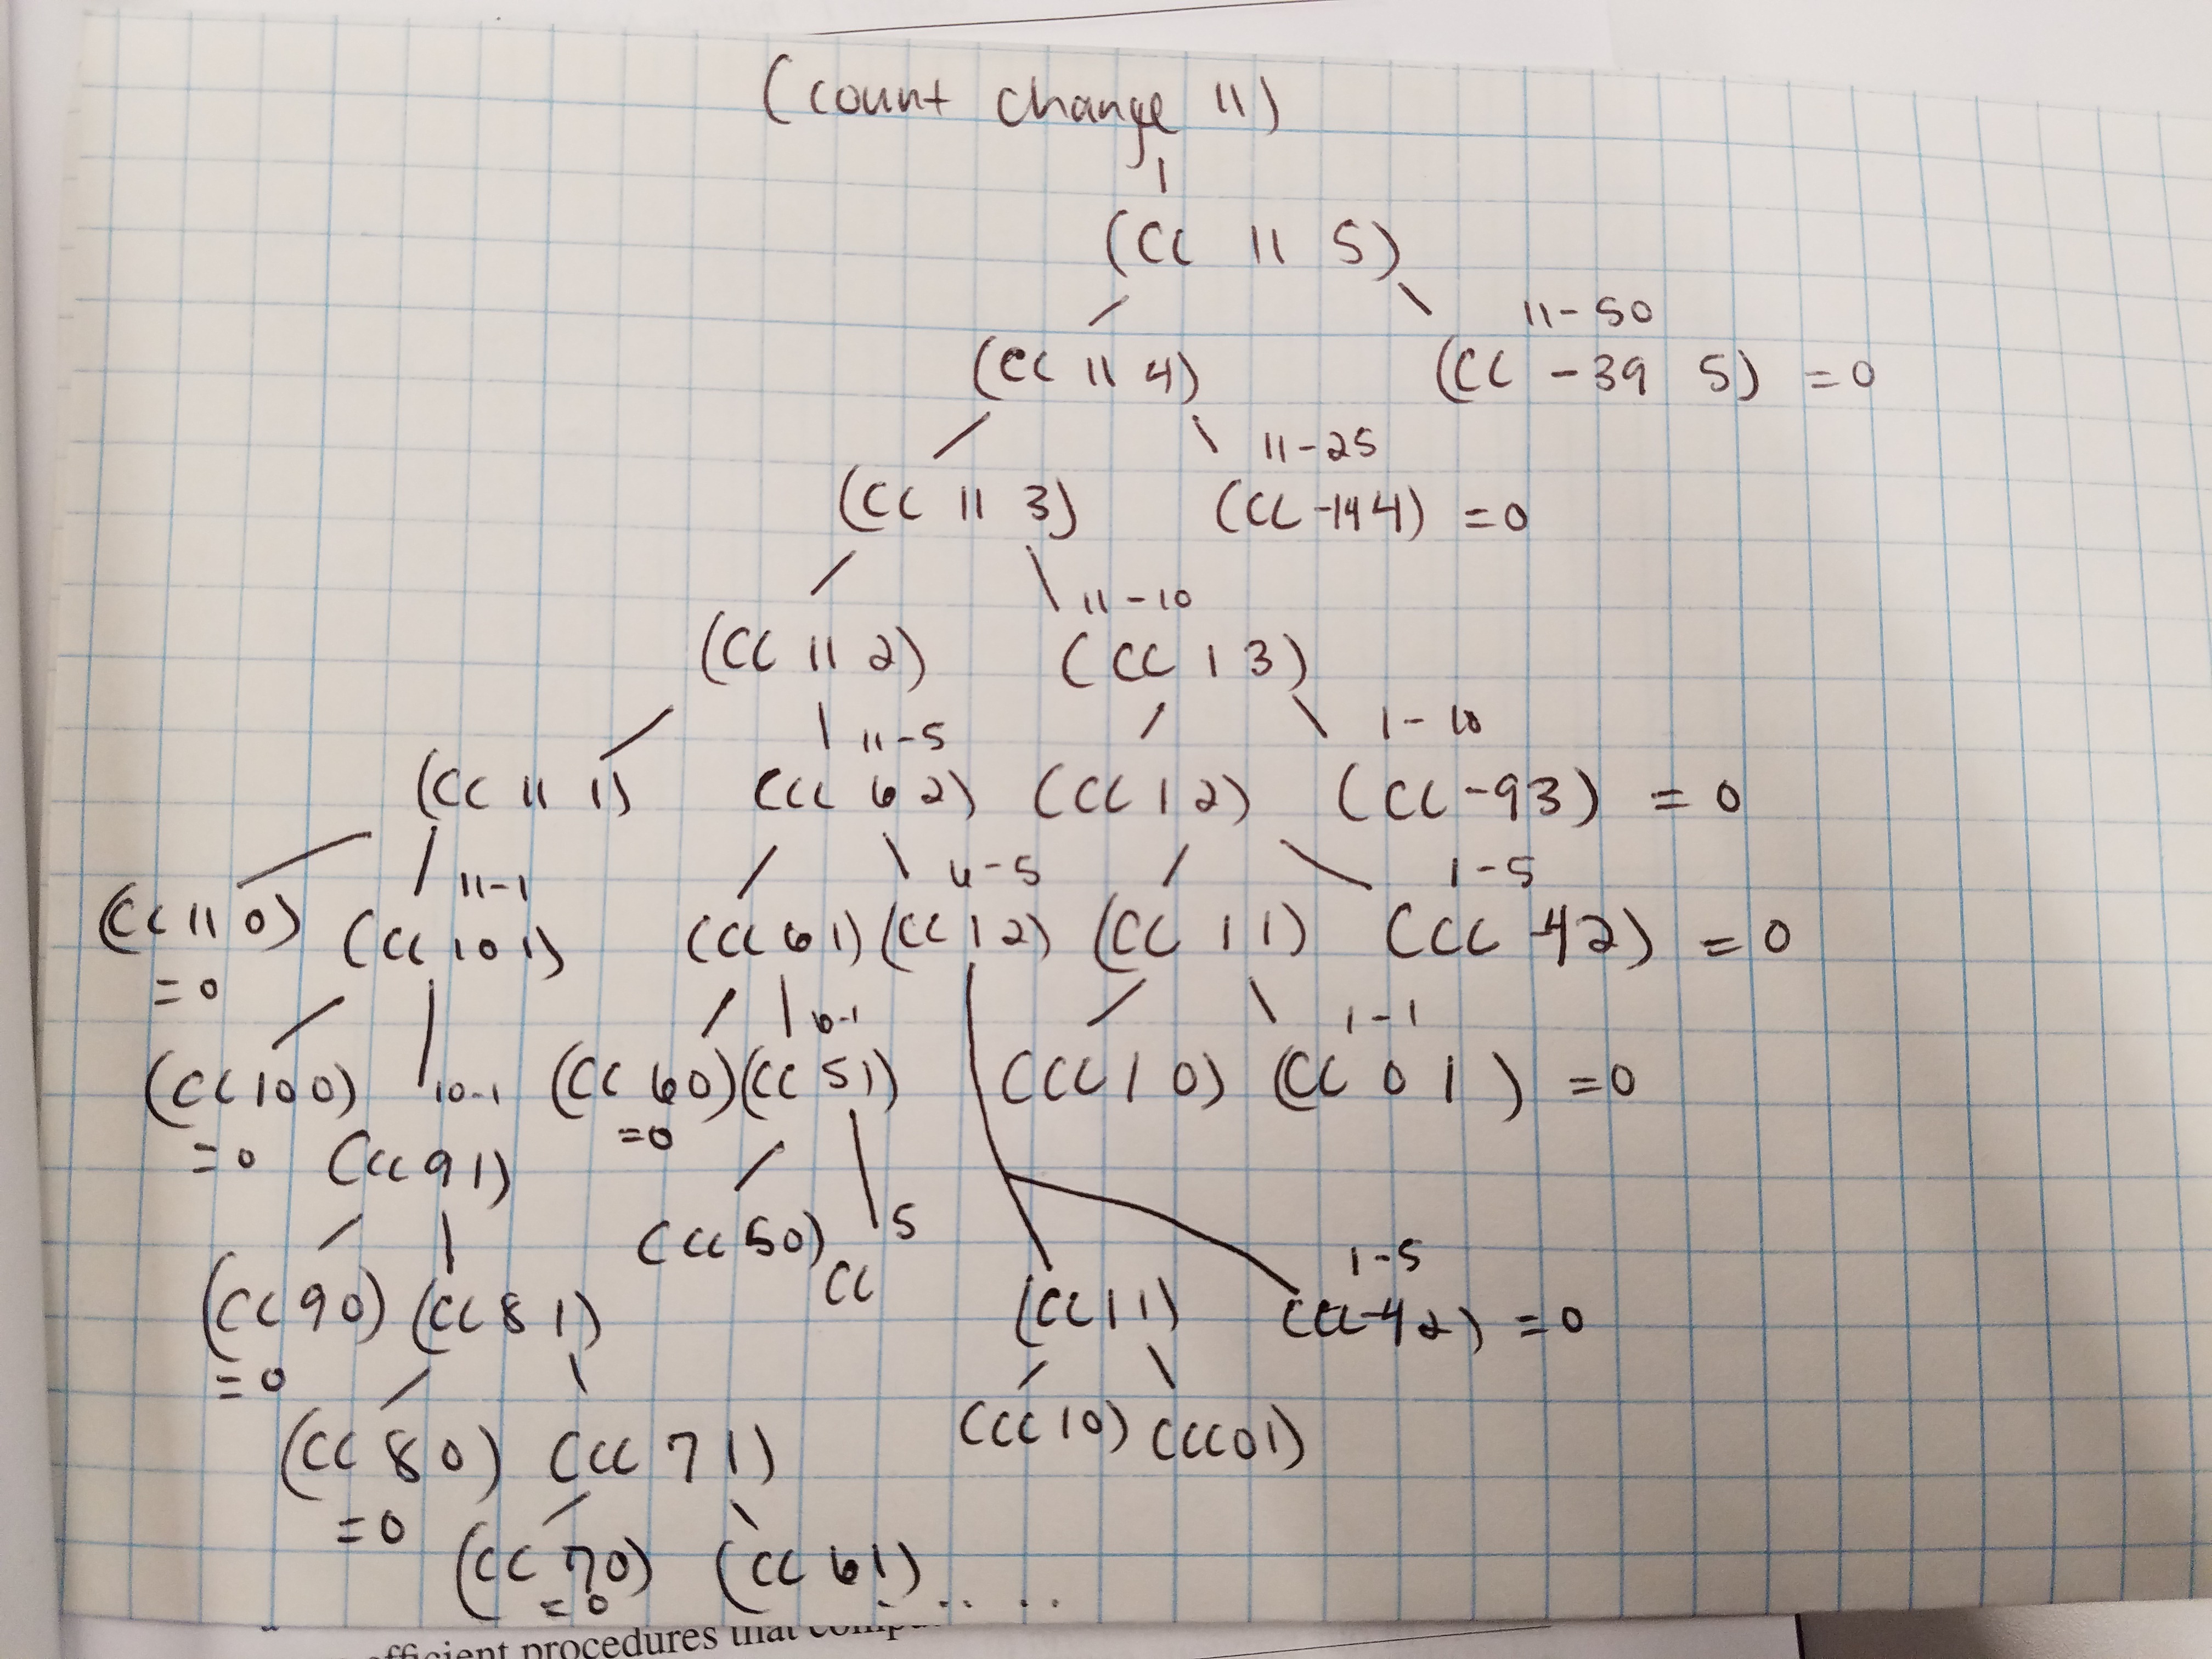 (count change 11)
(CC 11 5)
11-50
(CC 11 4) (CC -39 5) =0
11-25
(CC 11 3) (CC -14 4) =0
11-10
(CC 11 2) (CC 1 3)
11-5 1-10
(CC 11 1) (CC 6 2) (CC 1 2) (CC -9 3) =0
11-1 6-5 1-5
(CC 11 0) (CC 10 1) (CC 6 1) (CC 1 2) (CC 1 1) (CC -4 2) =0
=0 6-1 1-1
(CC 10 0) 10-1 (CC 6 0) (CC 5 1) (CC 1 0) (CC 0 1) =0
=0 (CC 9 1) =0
(CC 5 0) CC 5 1-5
(CC 9 0) (CC 8 1) (CC 1 1) (CC -4 2) =0
=0
(CC 8 0) (CC 7 1) (CC 1 0) (CC 0 1)
=0
(CC 7 0) (CC 6 1) ....
=0
efficient procedures that